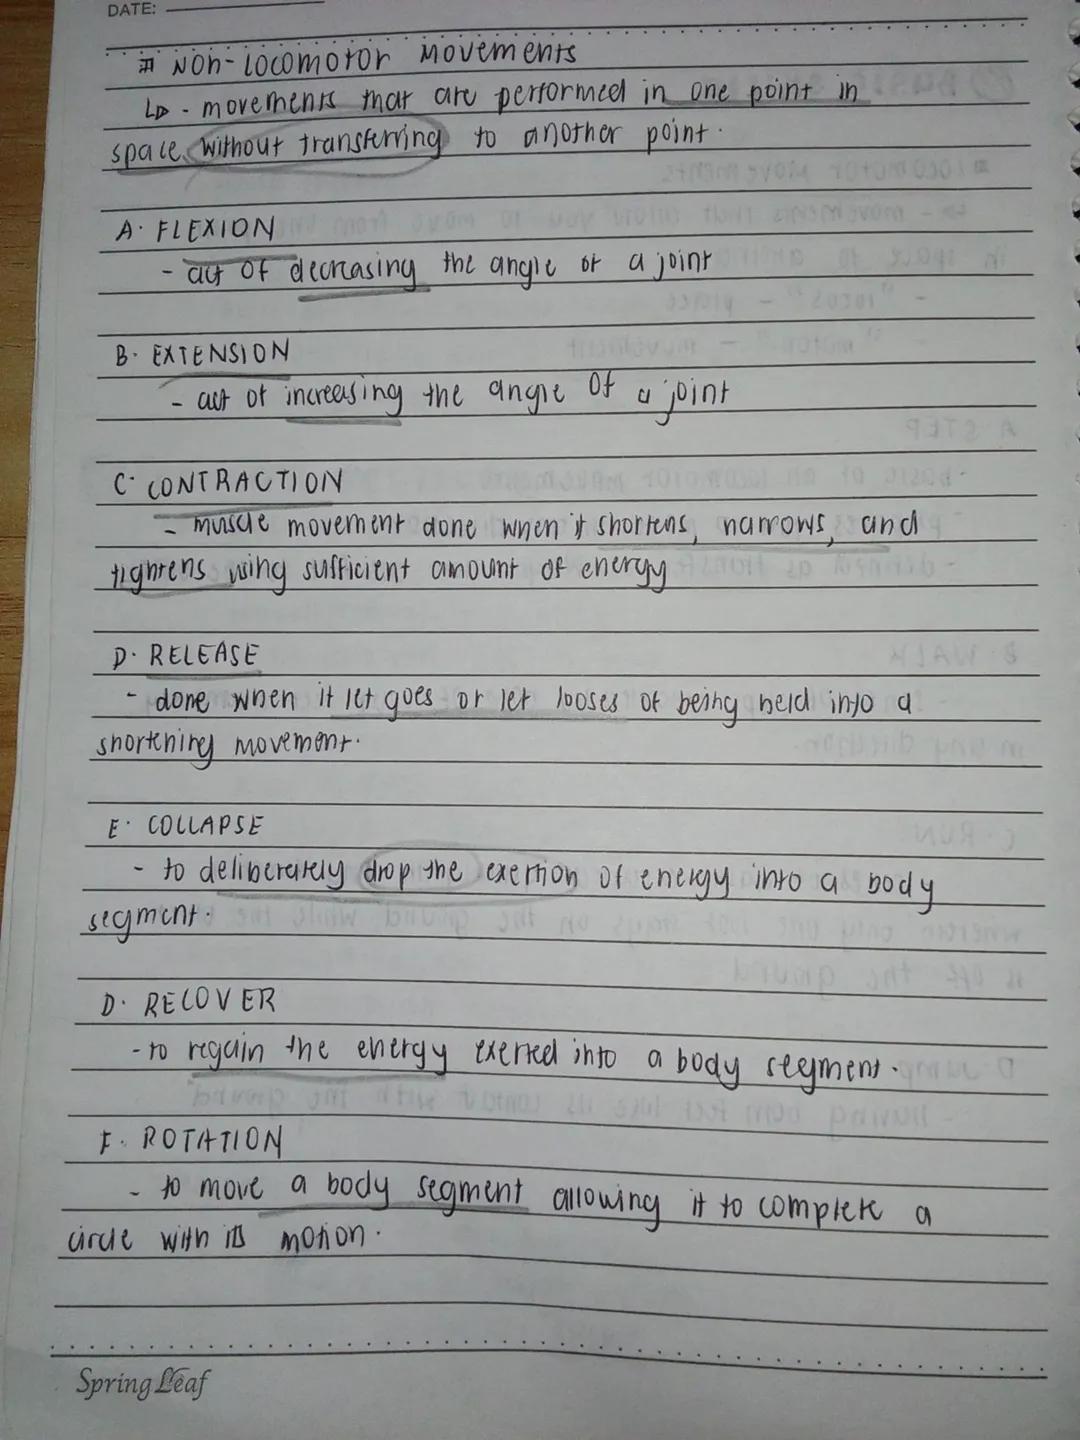 DATE:
Non-locomotor Movements
- movements that are performed in one point in
space without transferring to another point.
A. FLEXION
- act of decreasing the angle of a joint
B. EXTENSION
- act of increasing the angle of a joint
C. CONTRACTION
- muscle movement done when it shortens, narrows, and
tightens using sufficient amount of energy
D. RELEASE
- done when it let goes or let looses of being held into a
shortening movement.
E. COLLAPSE
- to deliberately drop the exertion of energy into a body
segment.
D. RECOVER
- to regain the energy exerted into a body segment.
F. ROTATION
- to move a body segment allowing it to complete a
circle with its motion.
Spring Leaf